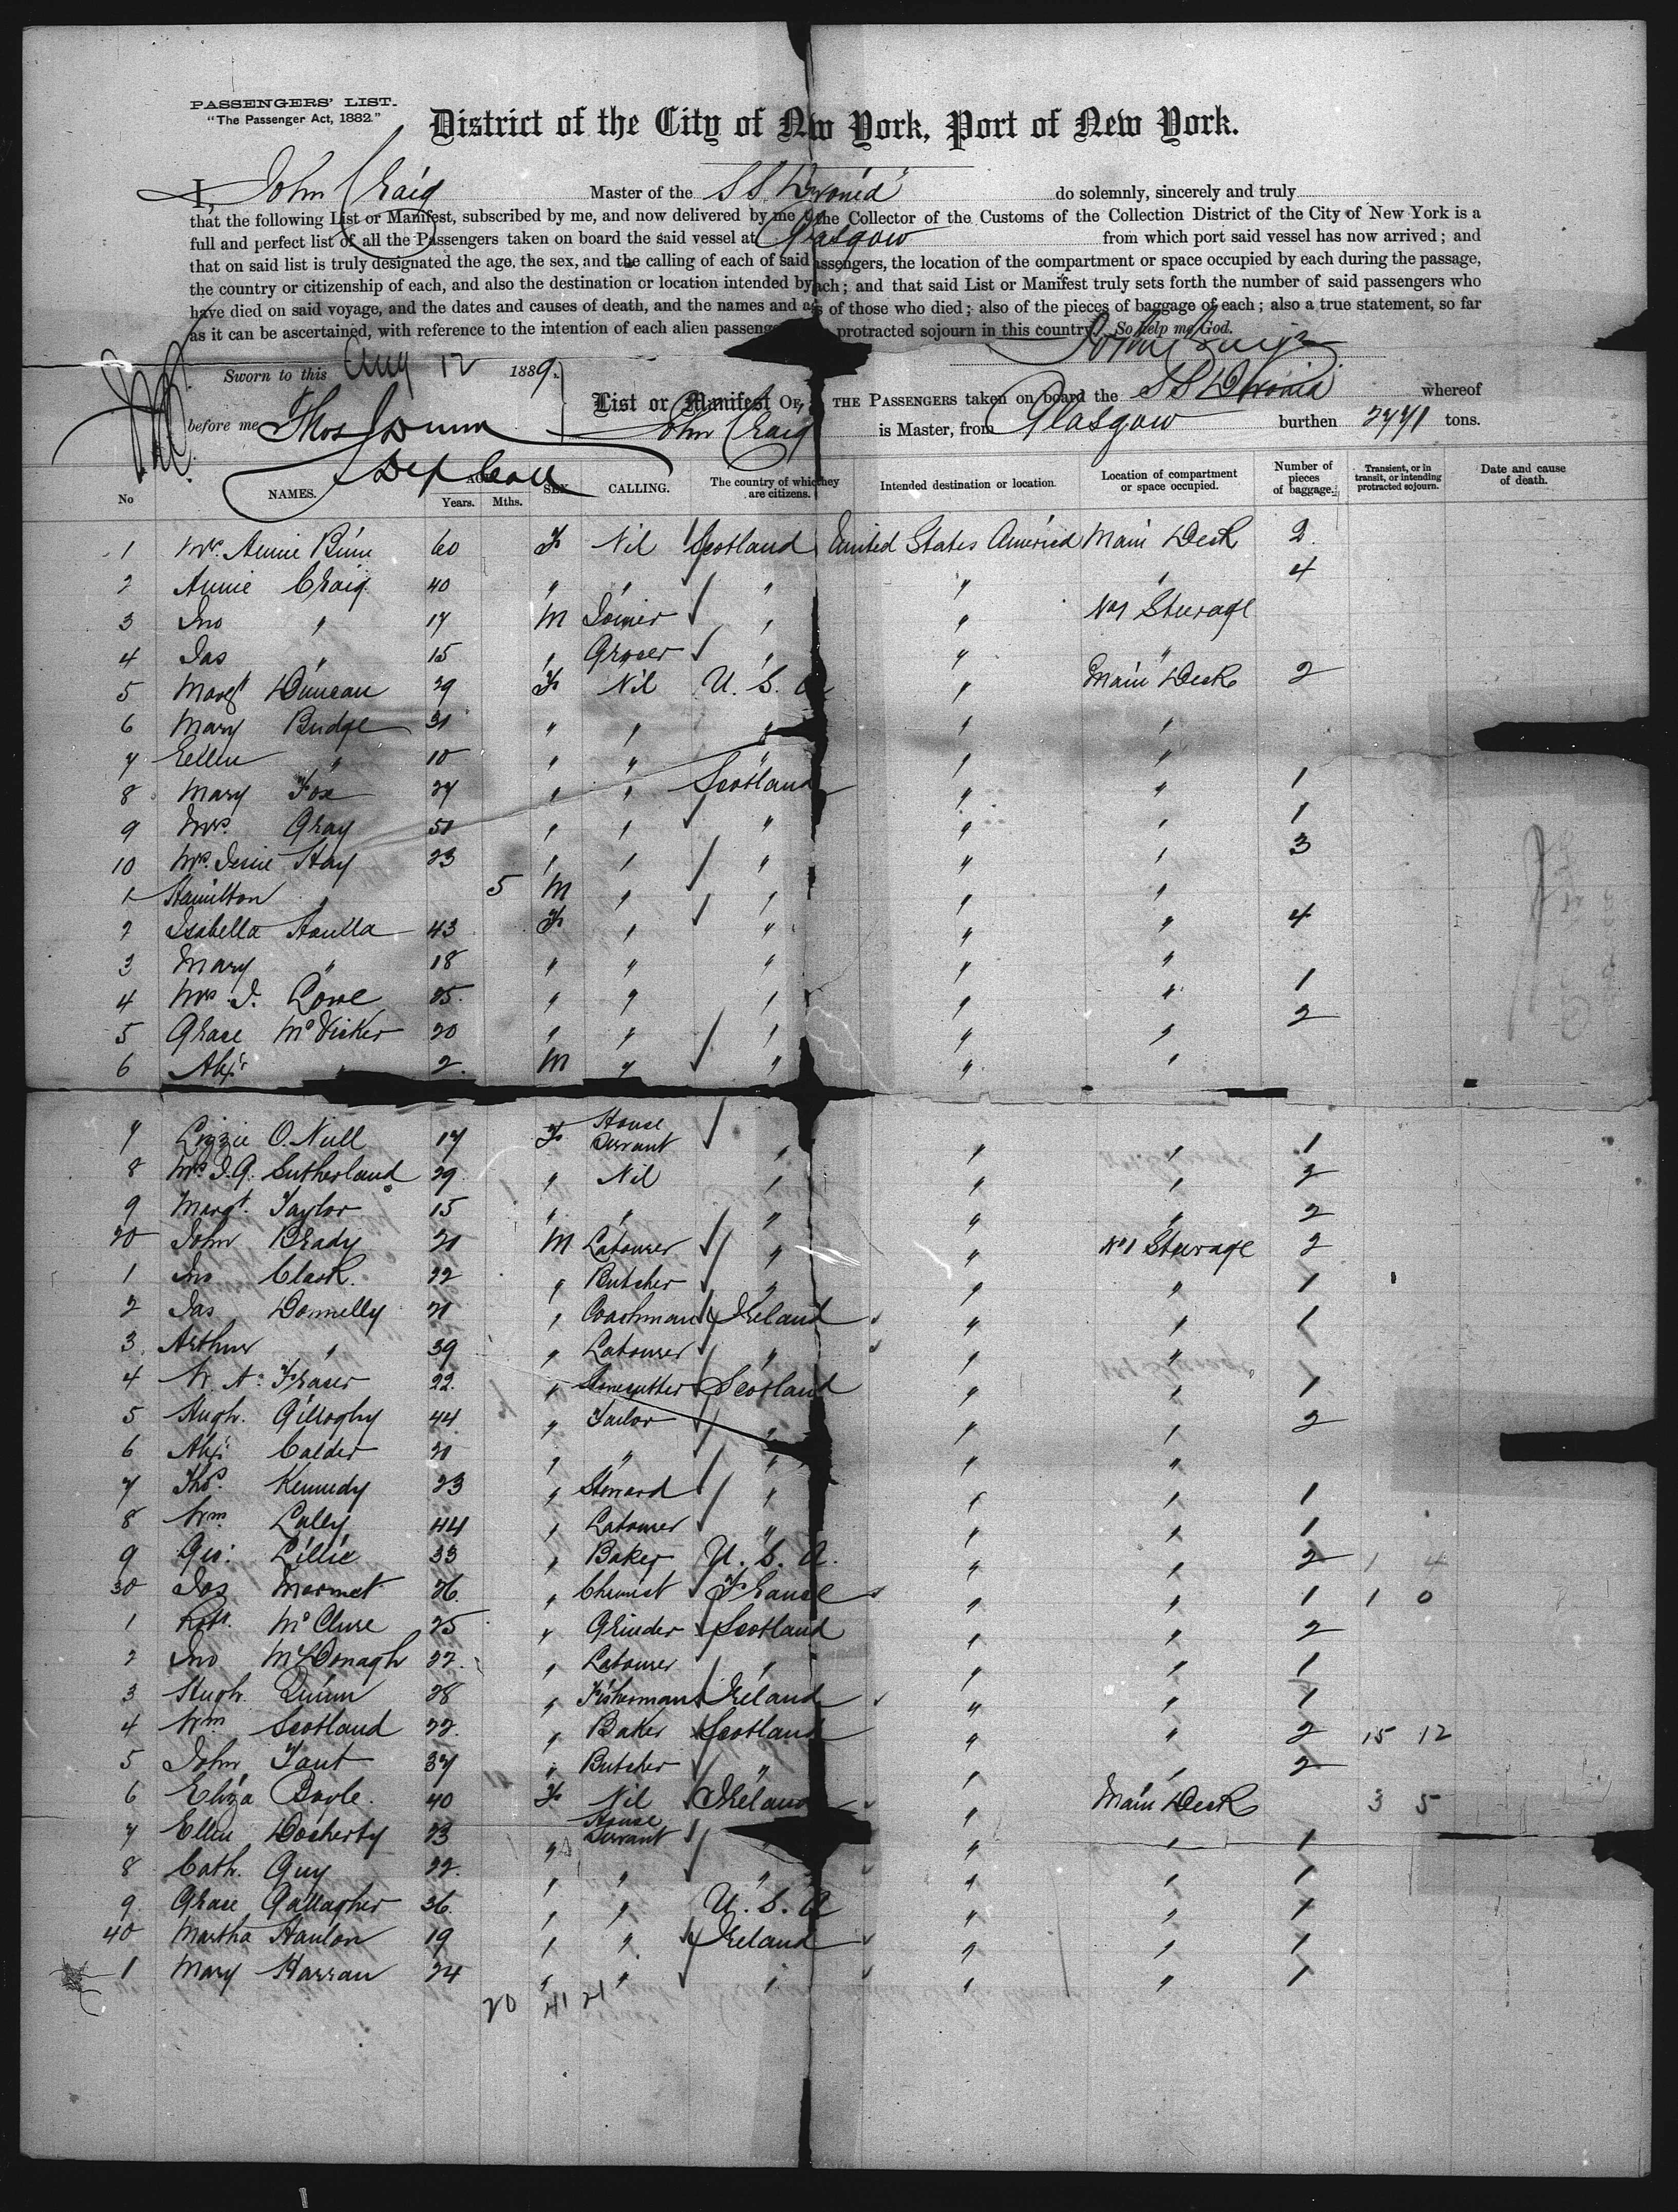 PASSENGERS' LIST.
"The Passenger Act, 1882."
District of the City of New York, Port of New York.
I, John Craig Master of the S S Devonia do solemnly, sincerely and truly
that the following List or Manifest, subscribed by me, and now delivered by me to the Collector of the Customs of the Collection District of the City of New York is a
full and perfect list of all the Passengers taken on board the said vessel at Glasgow from which port said vessel has now arrived; and
that on said list is truly designated the age, the sex, and the calling of each of said passengers, the location of the compartment or space occupied by each during the passage,
the country or citizenship of each, and also the destination or location intended by each; and that said List or Manifest truly sets forth the number of said passengers who
have died on said voyage, and the dates and causes of death, and the names and ages of those who died; also of the pieces of baggage of each; also a true statement, so far
as it can be ascertained, with reference to the intention of each alien passenger protracted sojourn in this country. So help me God.
John Craig
Sworn to this Aug 12 1889.
before me Thos Dunn
Dep Coll
List or Manifest OF THE PASSENGERS taken on board the S S Devonia whereof
John Craig is Master, from Glasgow burthen 2771 tons.
No NAMES. AGE Years. Mths. SEX CALLING. The country of which they are citizens. Intended destination or location. Location of compartment or space occupied. Number of pieces of baggage. Transient, or in transit, or intending protracted sojourn. Date and cause of death.
1 Mrs. Annie Binn 60 F Nil Scotland United States America Main Deck 2
2 Annie Craig 40 " " " " " 4
3 Jno " 17 M Joiner " " No 1 Steerage
4 Jas " 15 " Grocer " " "
5 Margt Duncan 29 F Nil U. S. A " Main Deck 2
6 Mary Budge 31 " " " " "
7 Eellen " 10 " " " " "
8 Mary Fox 27 " " Scotland " " 1
9 Mrs. Gray 51 " " " " " 1
10 Mrs. Jessie Hay 23 " " " " " 3
1 Hamilton " 5 M " " " "
2 Isabella Houlla 43 F " " " " 4
3 Mary " 18 " " " " "
4 Mrs J. Lowe 25 " " " " " 1
5 Grace McVicker 20 " " " " " 2
6 Alexr 2 M " " " "
7 Lizzie O.Neill 17 F House Servant " " " 1
8 Mrs J.G. Sutherland 29 " Nil " " " 2
9 Margt. Taylor 15 " " " " " 2
20 John Brady 21 M Labourer " " No 1 Steerage 2
1 Jno Clark 22 " Butcher " " " 1
2 Jas Donnelly 21 " Coachman Ireland " " 1
3 Arthur " 39 " Labourer " " "
4 W. A. Fraser 22 " Stonecutter Scotland " " 1
5 Hugh Gilloghy 44 " Tailor " " " 2
6 Alexr Calder 21 " " " " "
7 Thos. Kennedy 23 " Steward " " " 1
8 Wm Lally 44 " Labourer " " " 1
9 Geo. Lillie 33 " Baker U. S. A. " " 2 1 4
30 Jas Marmet 26 " Chemist France " " 1 1 0
1 Robt. McClure 25 " Grinder Scotland " " 2
2 Jno McDonagh 22 " Labourer " " " 1
3 Hugh Quinn 28 " Fisherman Ireland " " 1
4 Wm Scotland 22 " Baker Scotland " " 2 15 12
5 John Tant 37 " Butcher " " " 2
6 Eliza Boyle 40 F Nil Ireland " Main Deck 3 5
7 Ellen Docherty 23 " House Servant " " " 1
8 Cath. Guy 22 " " " " " 1
9 Grace Gallagher 36 " " U. S. A " " 1
40 Martha Hanlon 19 " " Ireland " " 1
1 Mary Harran 24 " " " " " 1
20 41 21